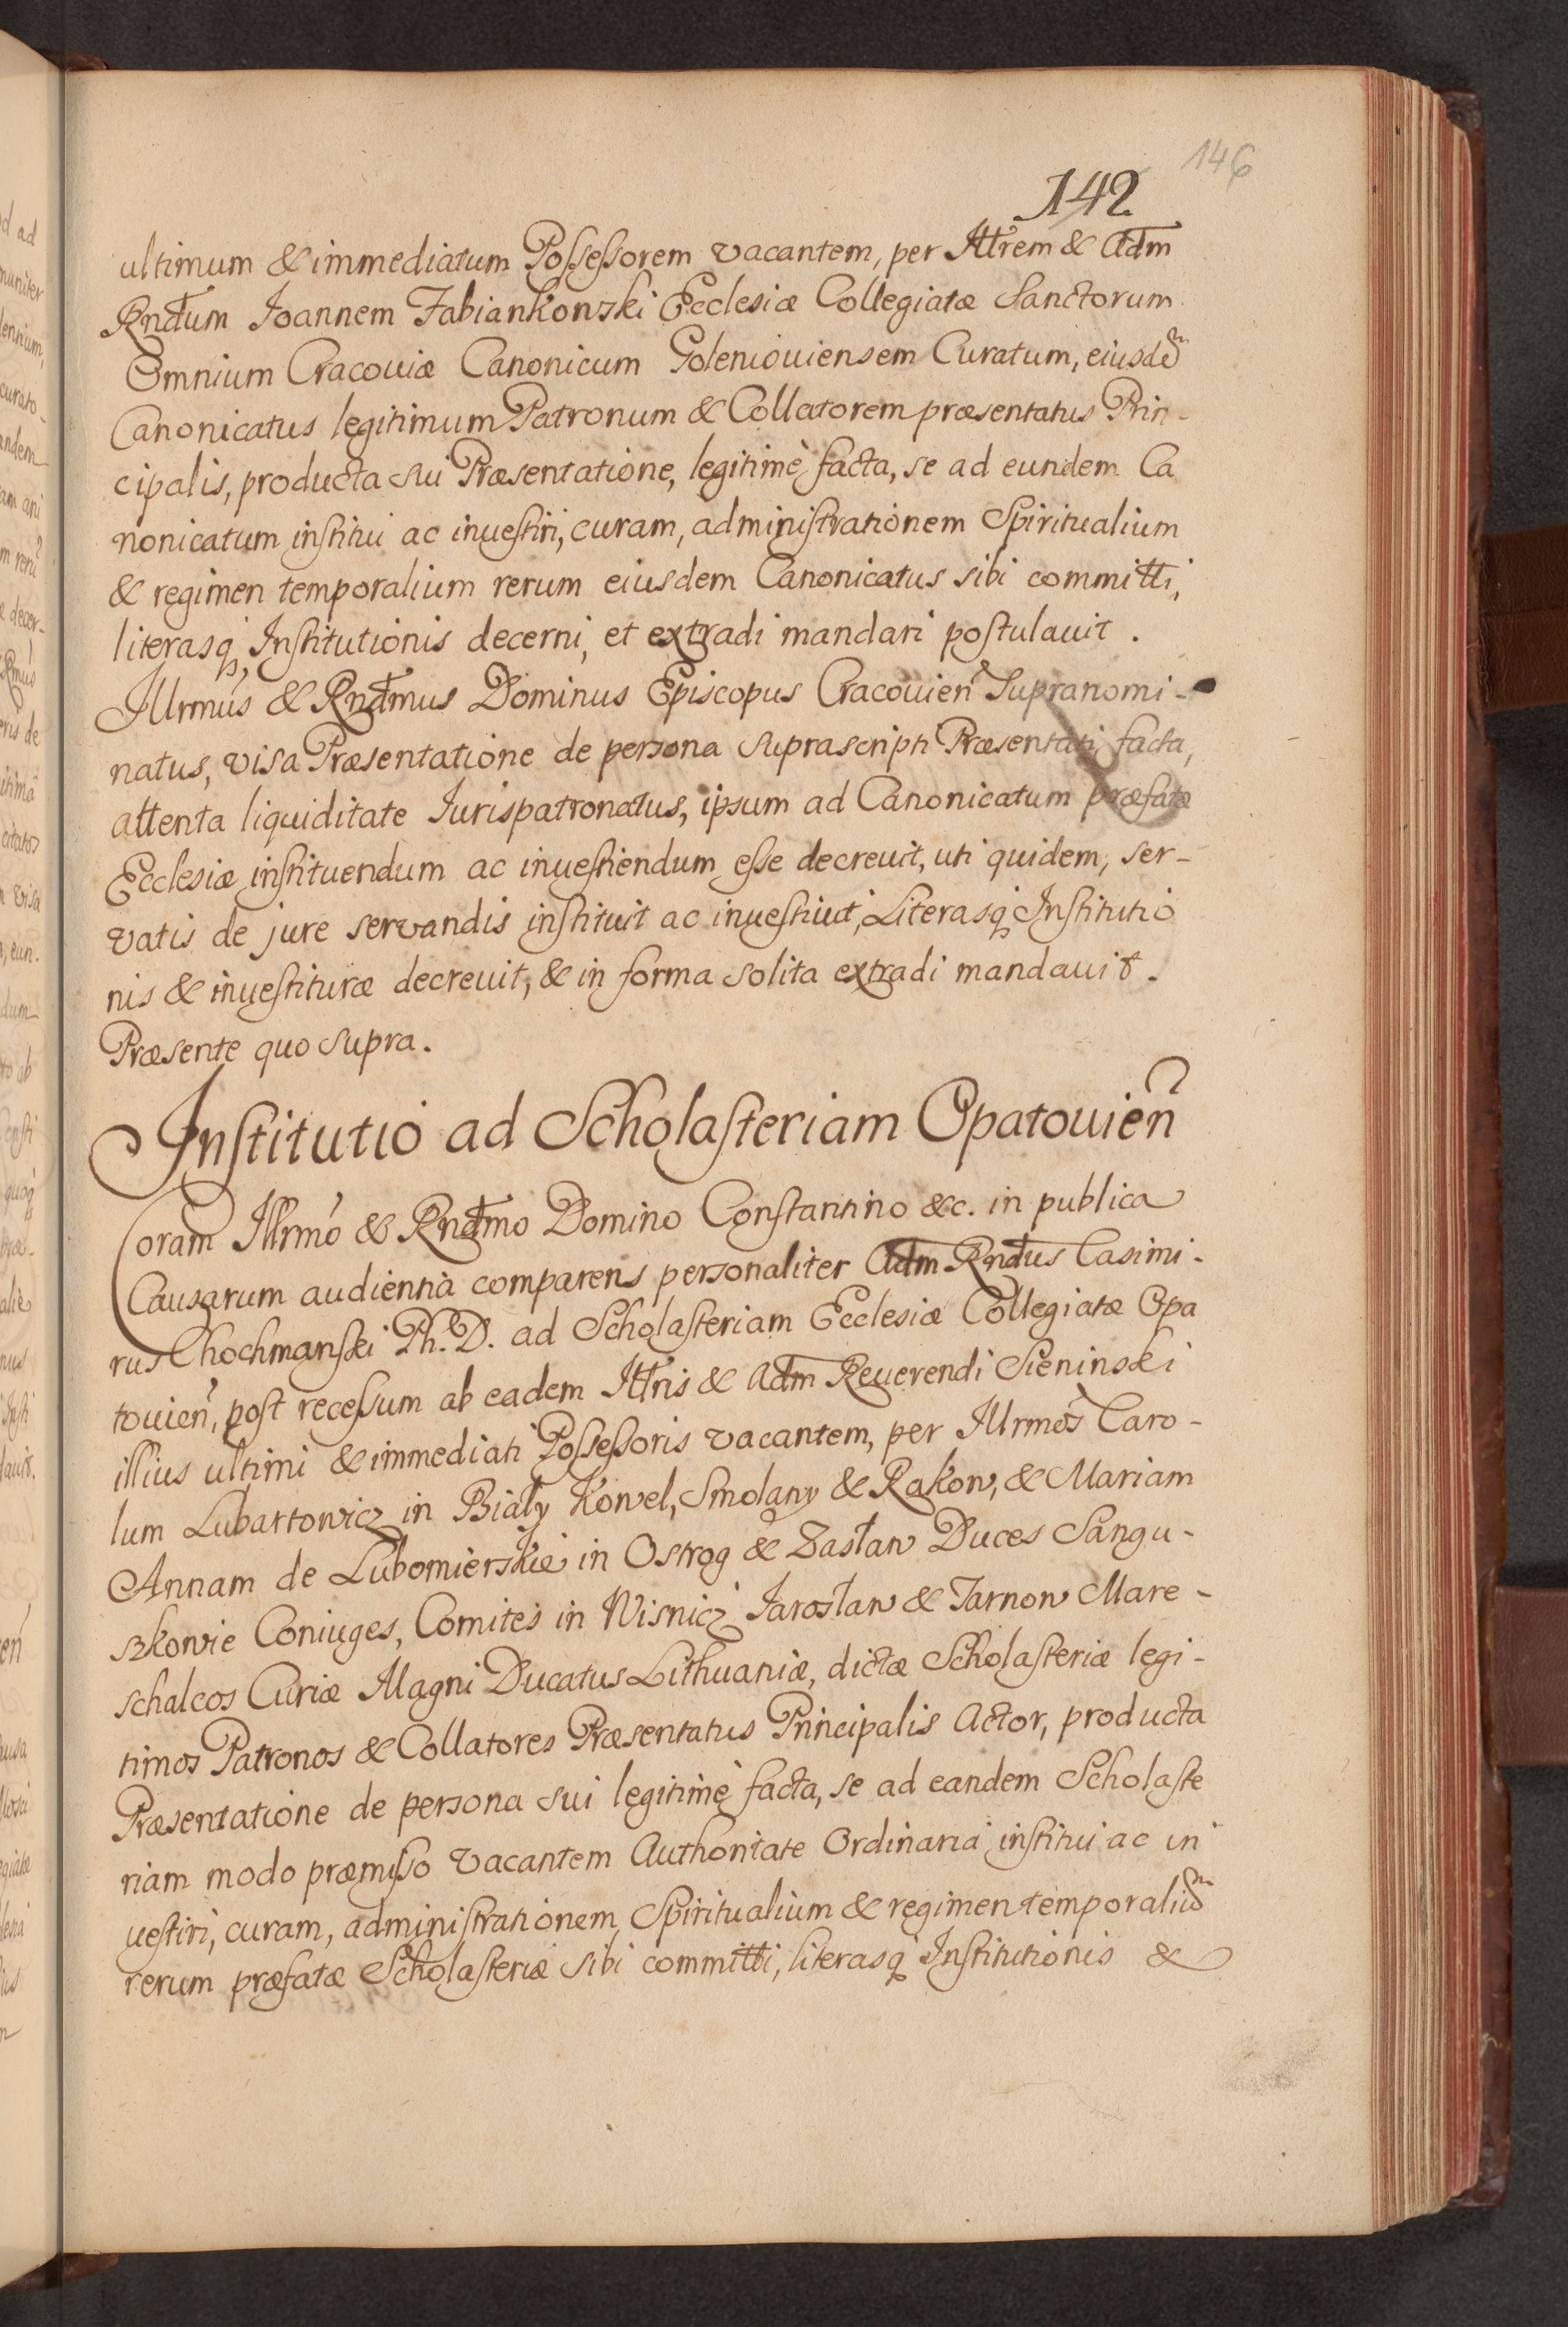 146
142
ultimum & immediatum Possessorem vacantem, per Illrem & Adm
Rndum Joannem Fabiankowski Ecclesiæ Collegiatæ Sanctorum
Omnium Cracouiæ Canonicum Goleniouiensem Curatum, eiusdẽ
Canonicatus legitimum Patronum & Collatorem præsentatus Prin-
cipalis, producta sui Præsentatione, legitimè facta, se ad eundem Ca
nonicatum institui ac inuestiri, curam, administrationem Spiritualium
& regimen temporalium rerum eiusdem Canonicatus sibi committi,
literasq, Institutionis decerni, et extradi mandari postulauit.
Illrmus & Rndmus Dominus Episcopus Cracouien Supranomi-
natus, visa Præsentatione de persona suprascripti Præsentati facta,
attenta liquiditate Iurispatronatus, ipsum ad Canonicatum præfatæ
Ecclesiæ instituendum ac inuestiendum esse decreuit, uti quidem, ser-
vatis de jure servandis instituit ac inuestiuit, Literasq Institutio
nis & inuestituræ decreuit, & in forma solita extradi mandauit.
Præsente quo supra.
Institutio ad Scholasteriam Opatouien
Coram Illrmo & Rndmo Domino Constantino &c. in publica
Causarum audientia comparens personaliter Adm Rndus Casimi-
rus Chochmanski Ph. D. ad Scholasteriam Ecclesiæ Collegiatæ Opa
touien, post recessum ab eadem Illris & Adm Reuerendi Sieninski
illius ultimi & immediati Possessoris vacantem, per Illrmos Caro-
lum Lubartowicz in Biały Kowel, Smolany & Rakow, & Mariam
Annam de Lubomierskie in Ostrog & Zasław Duces Sangu-
szkowie Coniuges, Comites in Wisnicz Jarosław & Tarnow Mare-
schalcos Curiæ Magni Ducatus Lithuaniæ, dictæ Scholasteriæ legi-
timos Patronos & Collatores Præsentatus Principalis Actor, producta
Præsentatione de persona sui legitimè facta, se ad eandem Scholaste
riam modo præmisso vacantem Authoritate Ordinaria institui ac in
uestiri, curam, administrationem Spiritualium & regimen temporaliũ
rerum præfatæ Scholasteriæ sibi committi, literasq Institutionis &